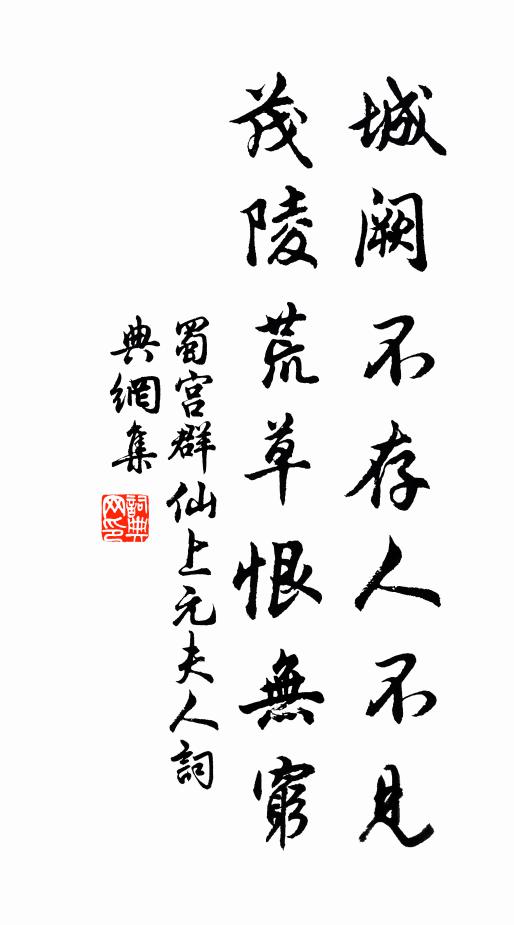 城阙不存人不見
茂陵荒草恨無窮
蜀宫群仙上元夫人詞
典網集
詞典网印